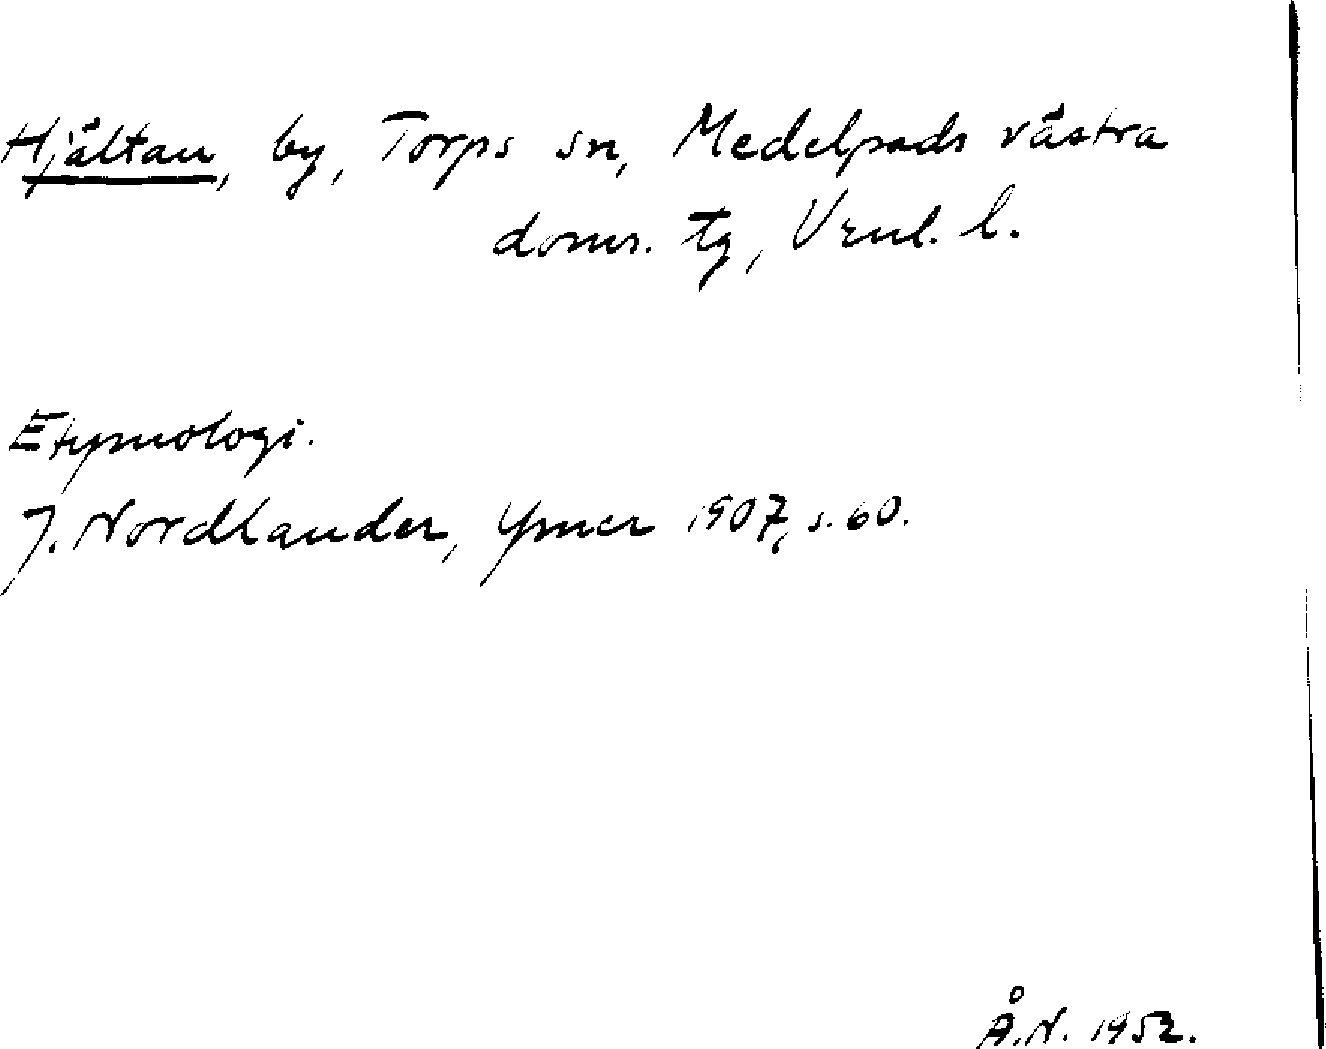 Hjältan, by, Torps sn, Medelpads västra
doms. tg, Vrnl. l.
Etymologi.
J. Nordlander, Ymer 1907, s. 60.
Å.N. 1952.